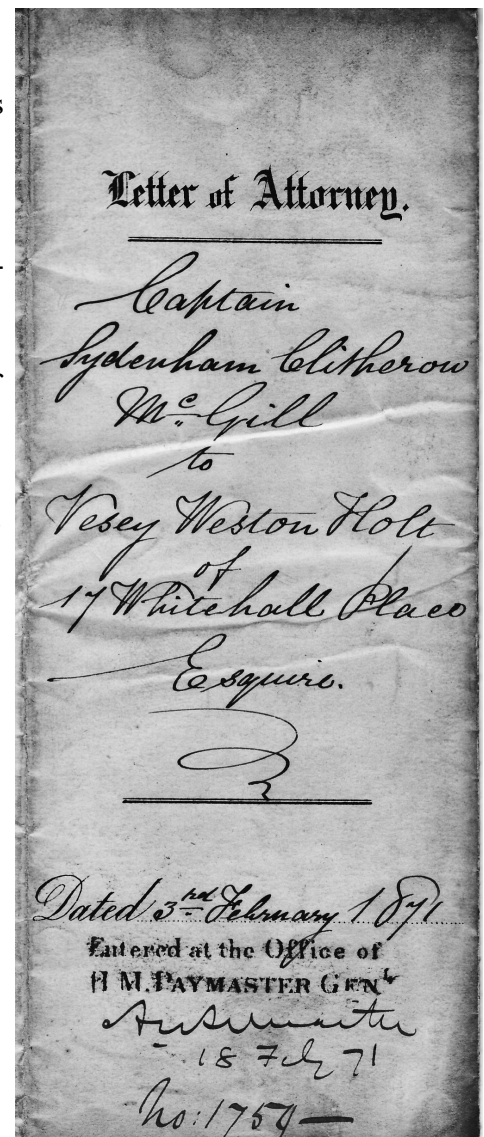 Letter of Attorney.
Captain
Sydenham Clitherow
Mc Gill
to
Vesey Weston Holt
of
17 Whitehall Place
Esquire.
Dated 3rd February 1871
Entered at the Office of
H M. PAYMASTER GENL
18 Feby 71
No: 1754